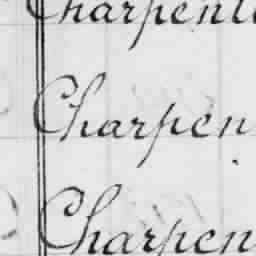 Charpente
Charpen
Charpen